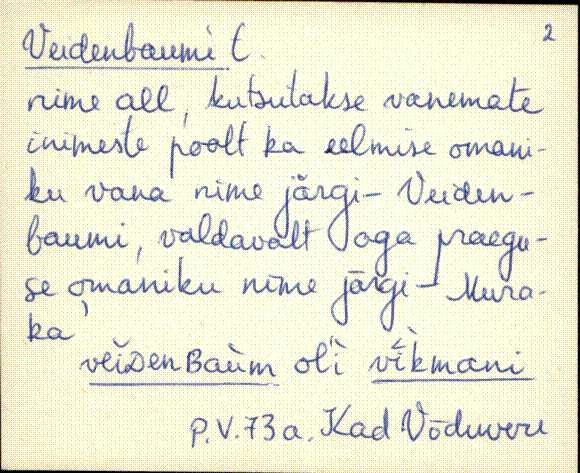 2
Veidenbaumi t.
nime all, kutsutakse vanemate
inimeste poolt ka eelmise omani-
ku vana nime järgi – Veiden-
baumi, valdavalt aga praegu-
se omaniku nime järgi – Mura-
ka
vĕiDenBaùm oĺi vìkmani
P.V. 73 a. Kad Võduvere